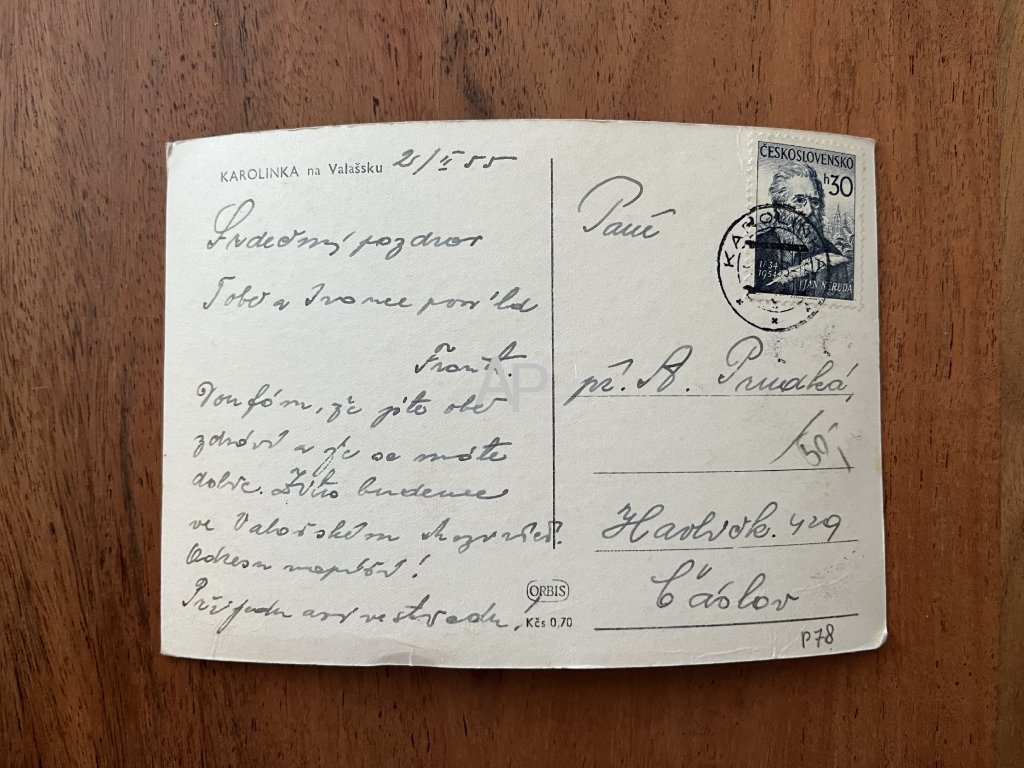 KAROLINKA na Valašsku 2/II 55
Srdečný pozdrav
Tobě a Ivance posílá
Frant.
Doufám, že jste obě
zdrávy a že se máte
dobře. Zítra budeme
ve Valašském Meziříčí.
Adresu napíši!
Přijedu asi ve středu!
ORBIS
Kčs 0,70
ČESKOSLOVENSKO
h30
1834
1954
JAN NERUDA
KAROLINKA
Paní
př. A. Prudká,
/50,
Havlíčk. 429
Čáslav
P78
AP